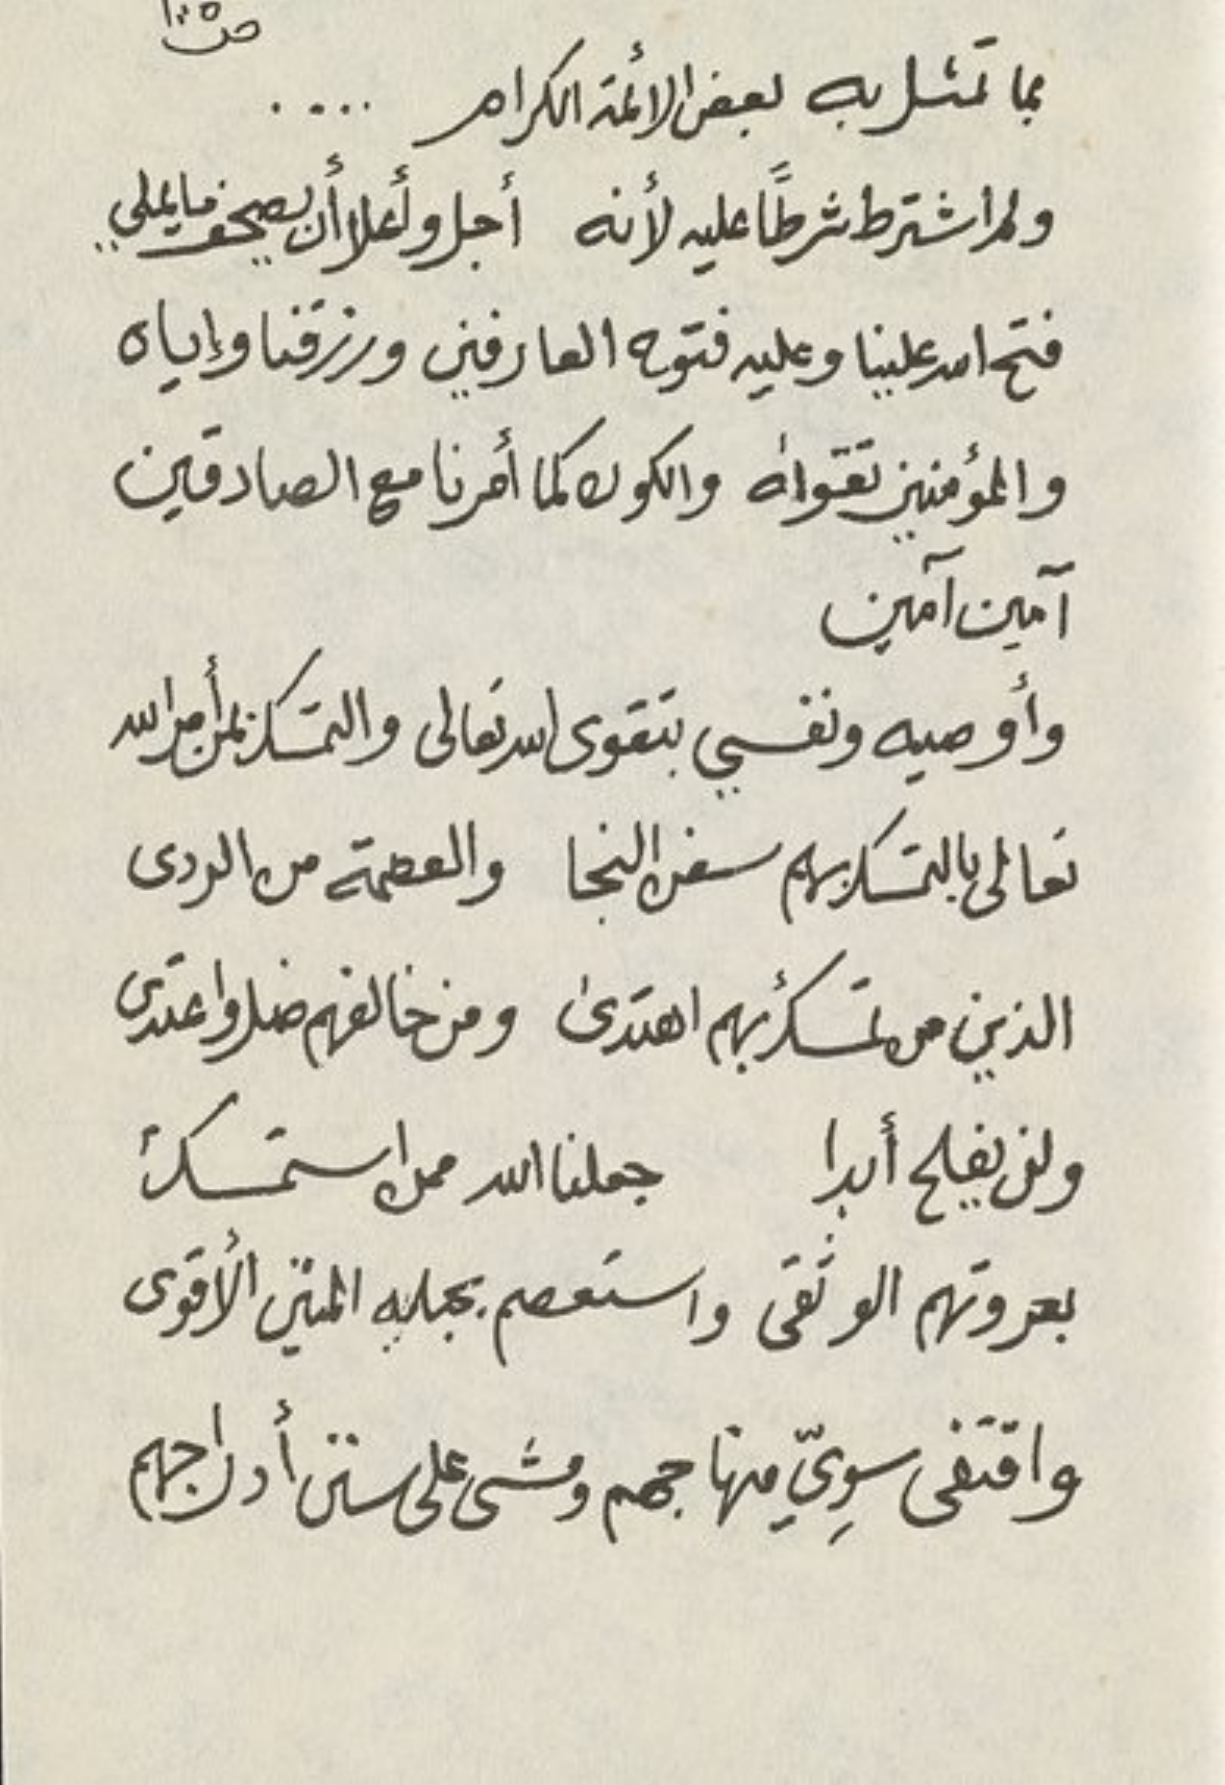 بما تمثل به بعض الأئمة الكرام ....
ولم اشترط شرطًا عليه لأنه أجل وأعلا أن يصحف ما يملي
فتح الله علينا وعليه فتوح العارفين ورزقنا وإياه
والمؤمنين تقواه والكون كما أمرنا مع الصادقين
آمين آمين
وأوصيه ونفسي بتقوى الله تعالى والتمسك بمن أمر الله
تعالى بالتمسك بهم سفن النجا والعصمة من الردى
الذين من تمسك بهم اهتدى ومن خالفهم ضل واعتدى
ولن يفلح أبدا جعلنا الله ممن استمسك
بعروتهم الوثقى واستعصم بحبله المتين الأقوى
واقتفى سوِيّ منهاجهم ومشى على سنن أدراجهم